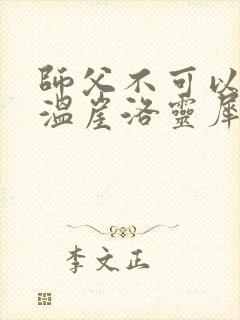 師父不可以
溫崖洛靈犀
李文正